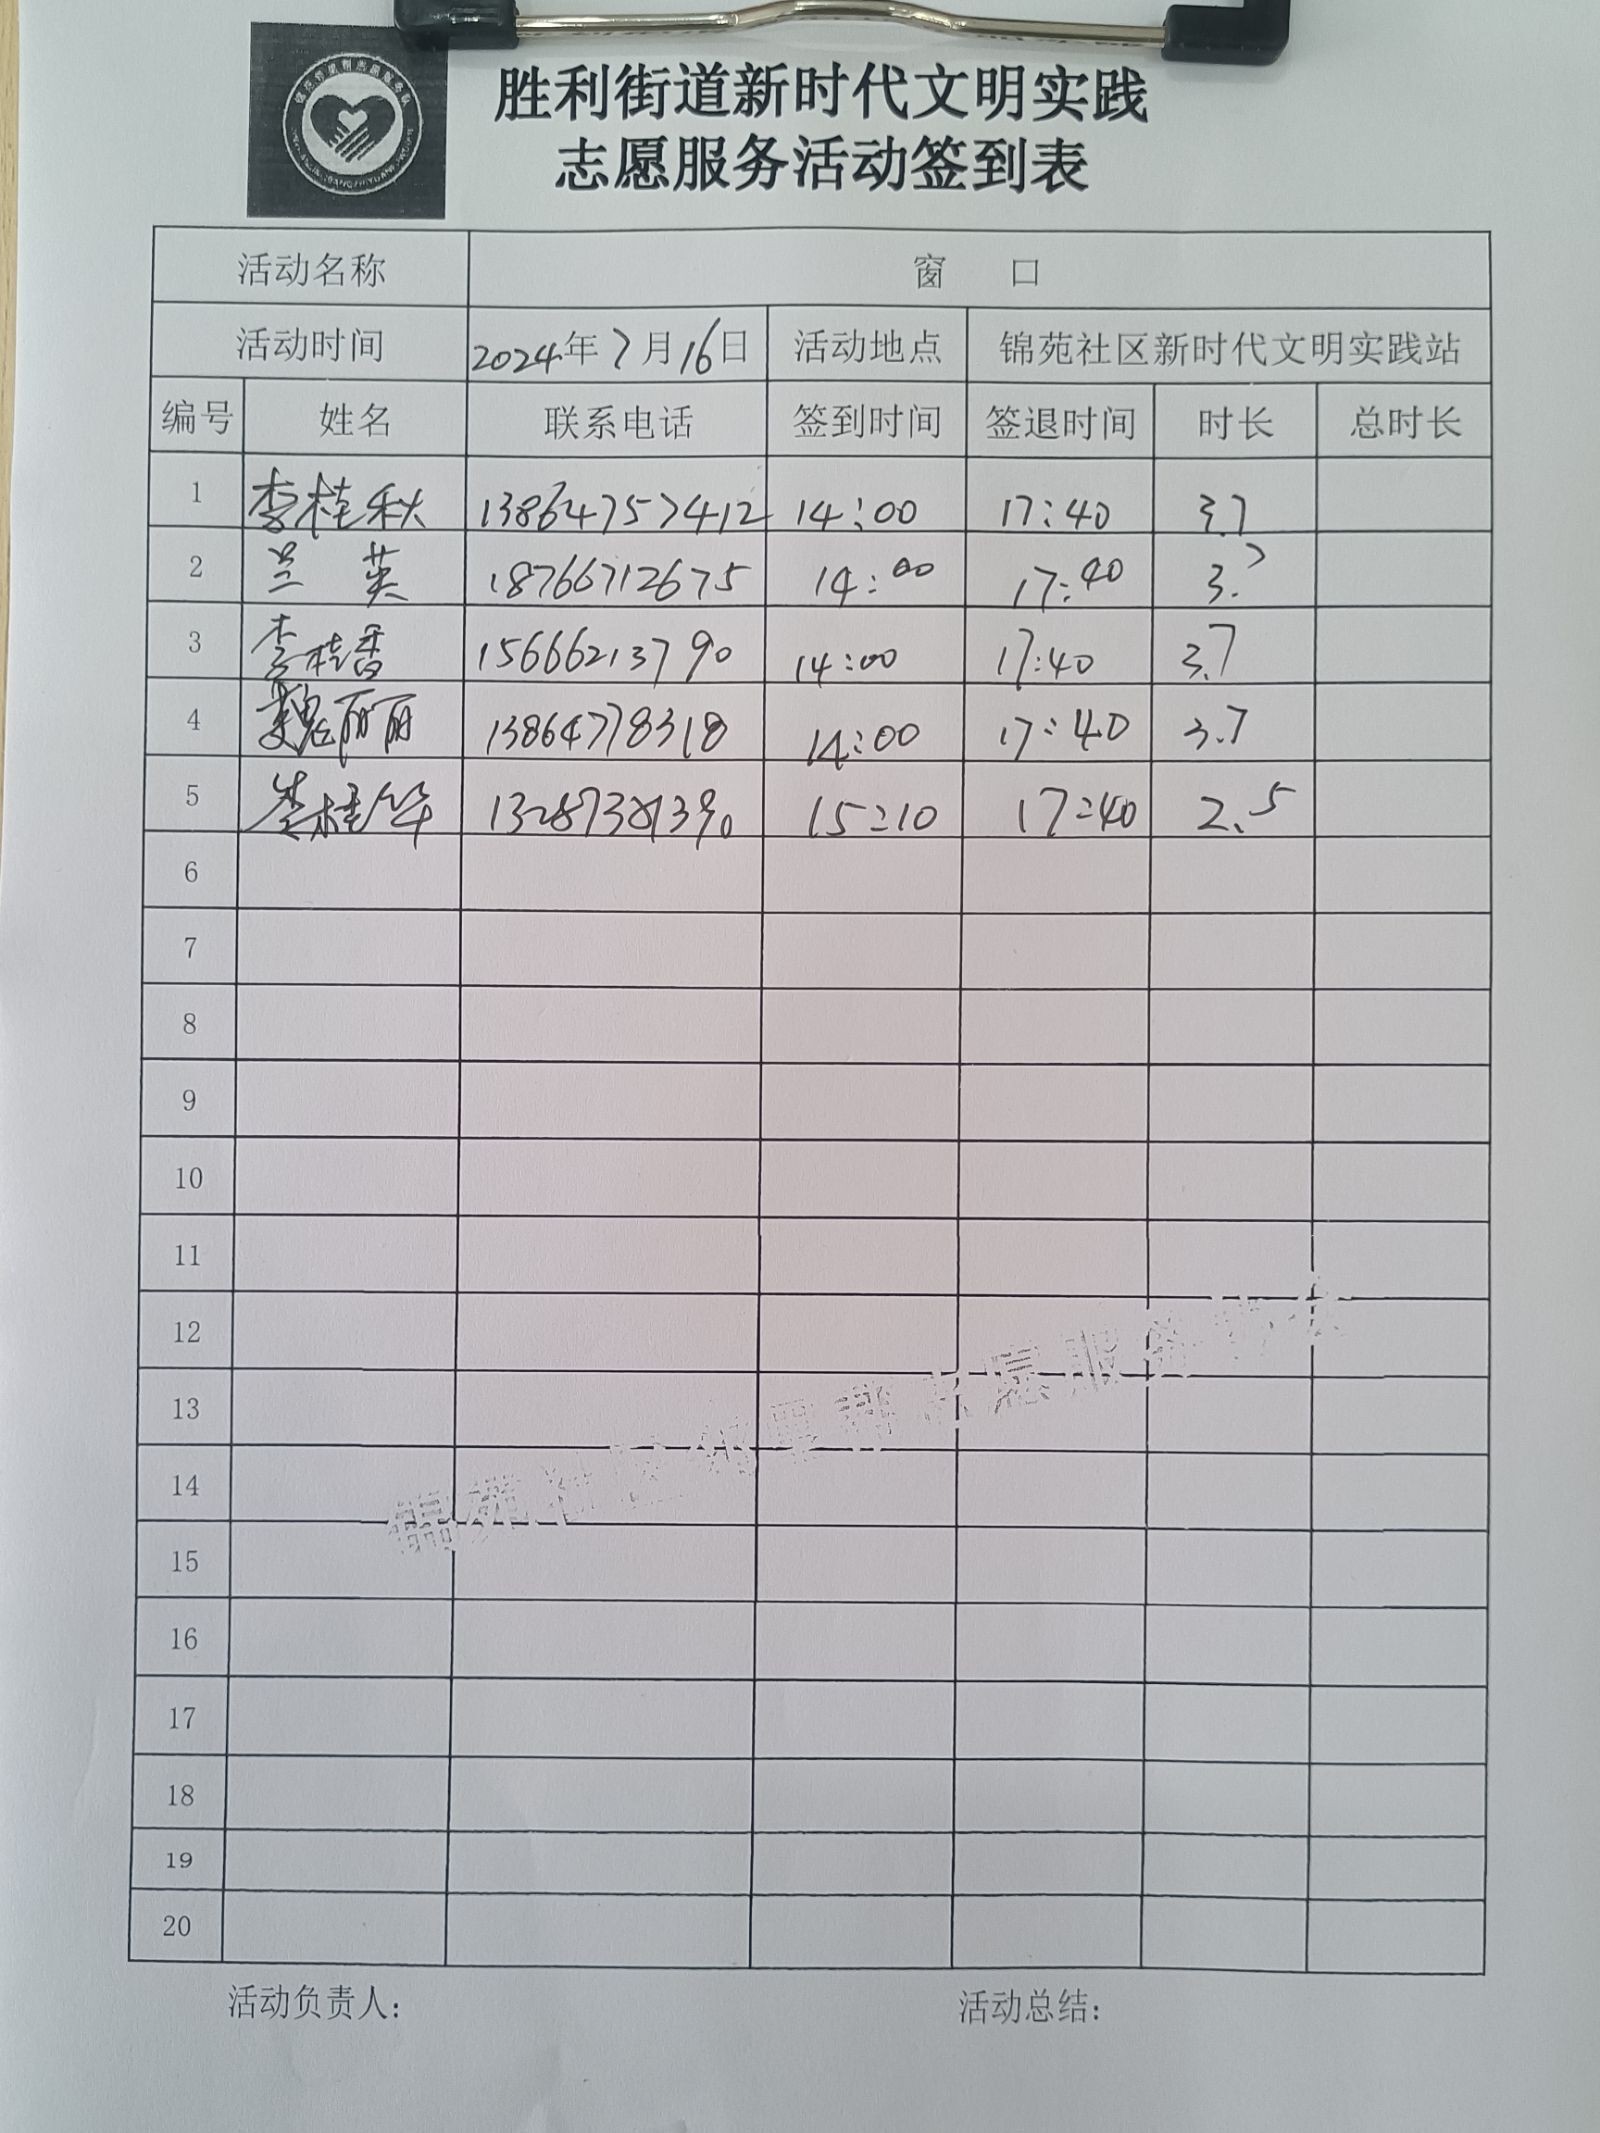 胜利街道新时代文明实践
志愿服务活动签到表
活动名称 窗 口
活动时间 2024年7月16日 活动地点 锦苑社区新时代文明实践站
编号 姓名 联系电话 签到时间 签退时间 时长 总时长
1 李桂秋 13864757412 14:00 17:40 3.7
2 兰英 18766712675 14:00 17:40 3.7
3 李桂香 15666213790 14:00 17:40 3.7
4 魏丽丽 13864778318 14:00 17:40 3.7
5 李桂华 13287381390 15:10 17:40 2.5
6
7
8
9
10
11
12
13
14
15
16
17
18
19
20
锦苑社区邻里帮志愿服务
活动负责人: 活动总结: